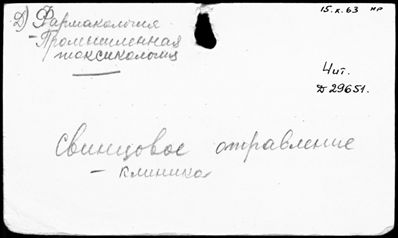 15.X.63 нр
Д) Фармакология
- Промышленная
токсикология
Чит.
Д 29651.
Свинцовое отравление
- клиника